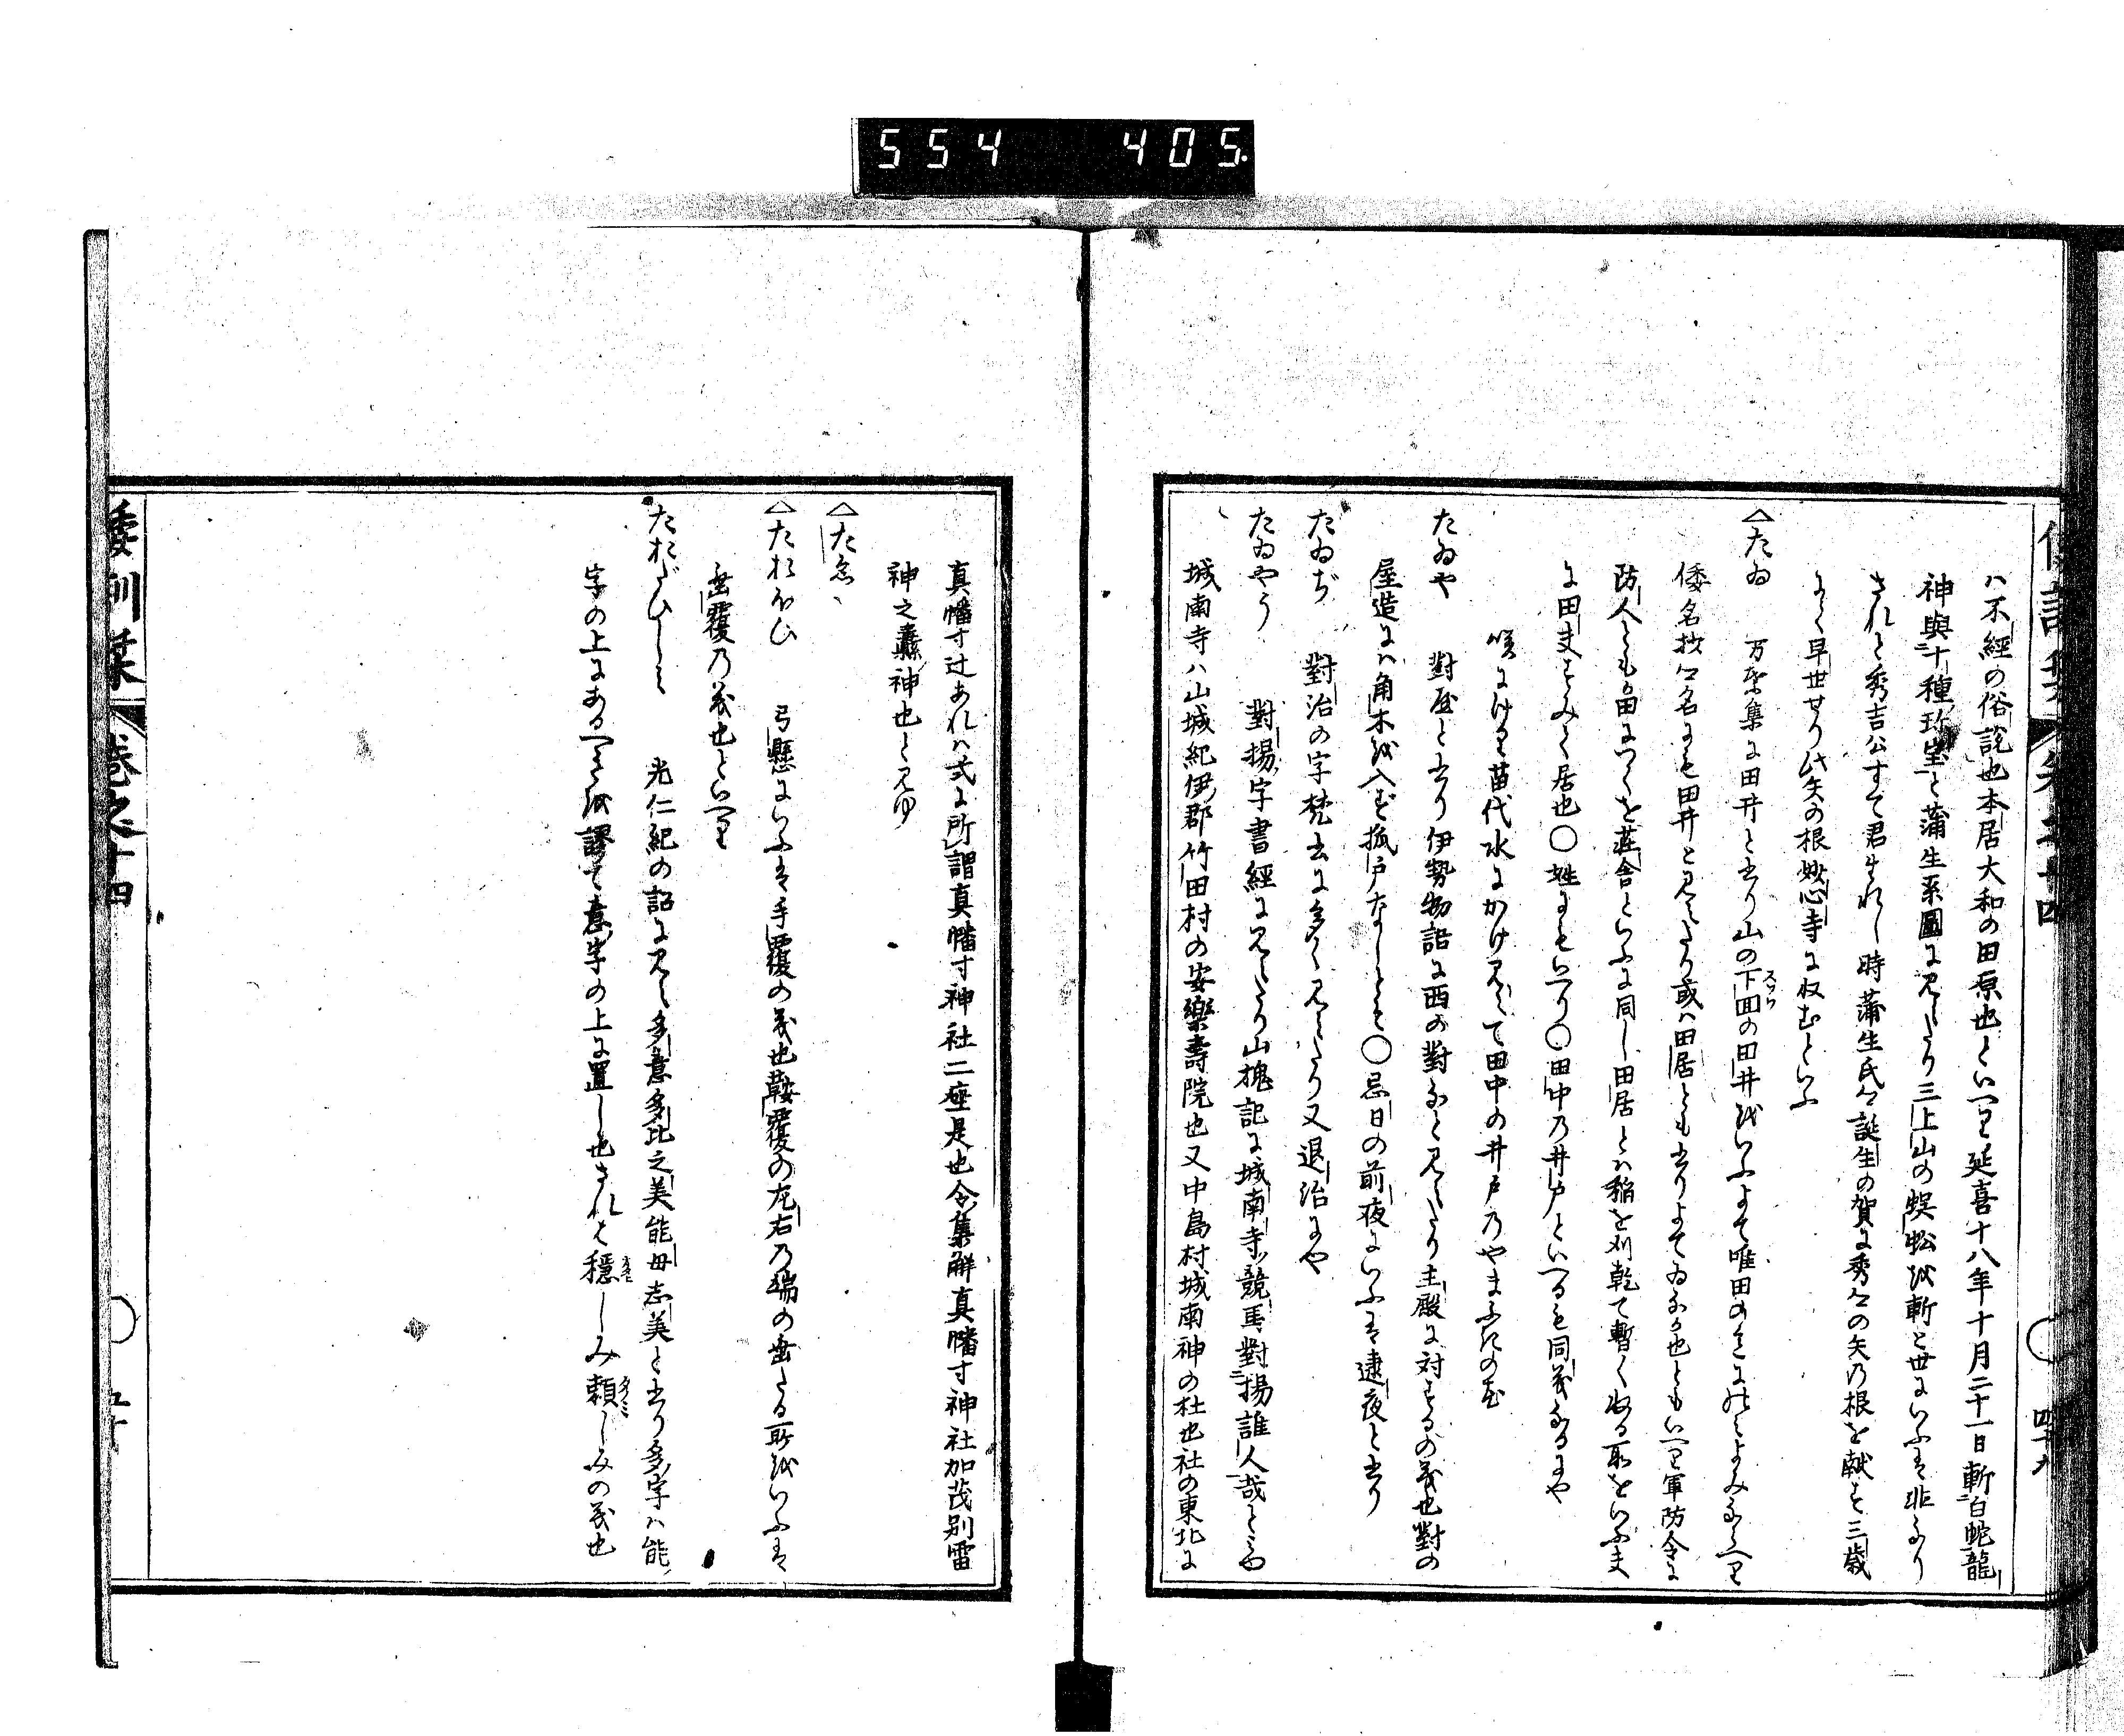 554 405.
ハ不經の俗説也本居大和の田原也といへり延喜十八年十月二十一日斬白蛇龍
神與十種珎宝と蒲生系圖に見えたり三上山の蜈蚣を斬と世にいふは非なり
されと秀吉公すて君生れし時蒲生氏より誕生の賀に秀郷の矢乃根を献す三歳
にて早世せり此矢の根妙心寺に収むといふ
△たゐ 万葉集に田井と書り山の下田の田井をいふよて唯田のことによみならへり
倭名抄名にも田井と見えたり或ハ田居とも書りよてゐなか也ともいへり軍防令に
防人とも田につくを荘舎といふに同し田居とハ稲を刈乾て暫く収る所をいふ夫
に田夫すみて居也○姓にもいへり○田中乃井戸といへるも同義なるにや
咲にけり苗代水にかけ見えて田中の井戸乃やまふきの花
たゐや 對屋と書り伊勢物語に西の對なと見えたり主殿に対するの義也對の
屋造にハ角木を入す狐戸なしとそ○忌日の前夜にいふは逮夜と書り
たゐぢ 對治の字梵書に多く見えたり又退治にや
たゐやう 對揚字書經に見えたり山槐記に城南寺競馬對揚誰人哉とみゆ
城南寺ハ山城紀伊郡竹田村の安樂壽院也又中島村城南神の社也社の東北に
真幡寸辻あれハ式に所謂真幡寸神社二座是也令集解真幡寸神社加茂別雷
神之纛神也と見ゆ
△たゑ
△たおほひ 弓懸にいふは手覆の義也鞍覆の左右乃端の垂たる所をいふは
垂覆乃義也といへり
たおだひしみ 光仁紀の詔に見え多意多比之美能毋志美と書り多字ハ能
字の上にあるへきを謬て意字の上に置し也されは穏しみ頼しみの義也
倭訓栞 巻之十四 五十